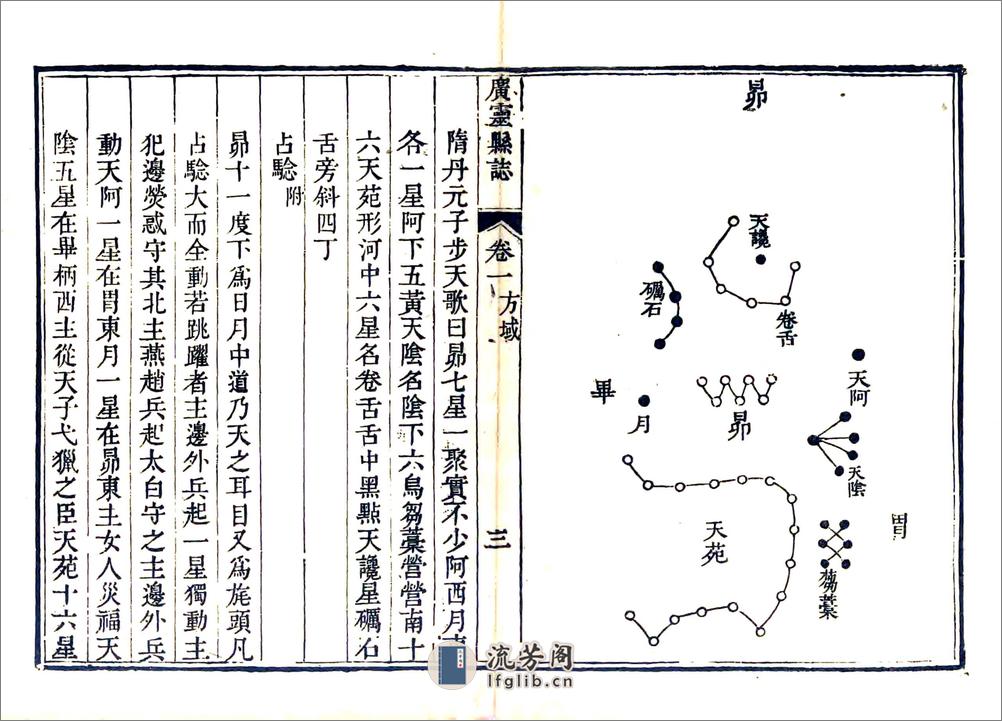 昴
天讒
卷舌
礪石
天阿
昴
月
畢
天陰
胃
天苑
芻藁
廣靈縣誌
卷一
方域
三
隋丹元子步天歌曰昴七星一聚實不少阿西月東
各一星阿下五黃天陰名陰下六烏芻藁營營南十
六天苑形河中六星名卷舌舌中黑點天讒星礪石
舌旁斜四丁
占驗附
昴十一度下爲日月中道乃天之耳目又爲旄頭凡
占驗大而全動若跳躍者主邊外兵起一星獨動主
犯邊熒惑守其北主燕趙兵起太白守之主邊外兵
動天阿一星在胃東月一星在昴東主女人災福天
陰五星在畢柄西主從天子弋獵之臣天苑十六星
流芳阁
lfglib.cn